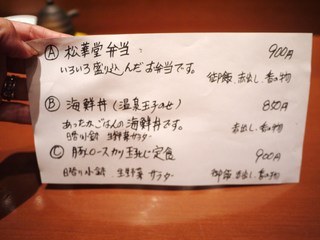 Ⓐ 松華堂弁当 900円
いろいろ盛り込んだお弁当です。 御飯 赤出し 香の物
Ⓑ 海鮮丼(温泉玉子のせ) 850円
あったかごはんの海鮮丼です。 赤出し 香の物
日替り小鉢 生野菜サラダ
Ⓒ 豚ロースカツ玉とじ定食 900円
日替り小鉢 生野菜サラダ 御飯 赤出し 香の物